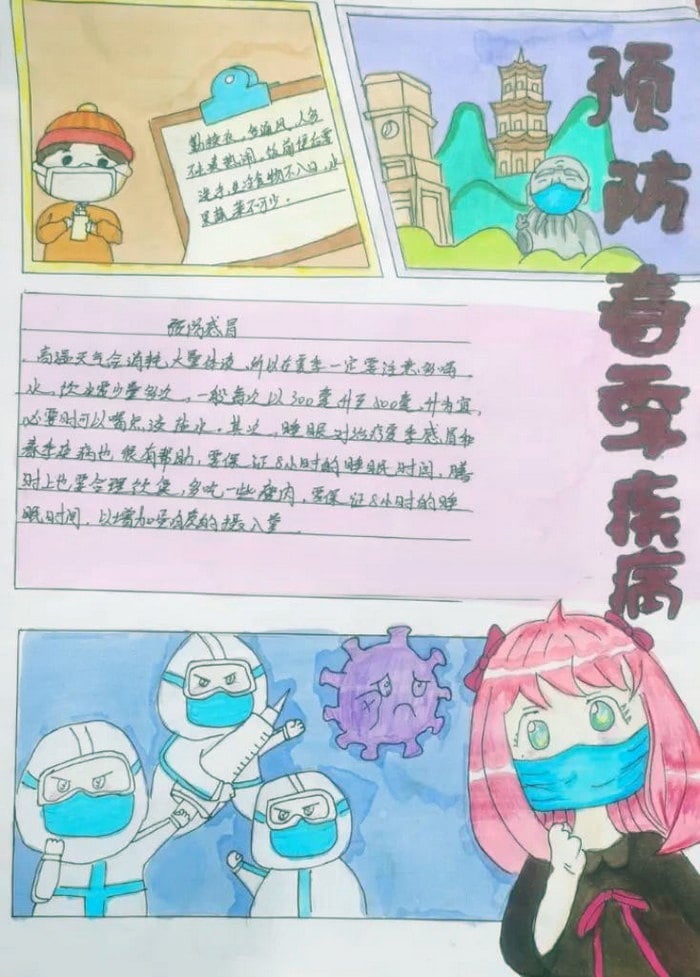 预防春季疾病
勤换衣，多通风，人多
不去凑热闹，饭前便后要
洗手，生冷食物不入口，水
果蔬菜不可少。
预防感冒
高温天气会消耗大量体液，所以在夏季一定要注意多喝
水，饮水需少量多次，一般每次以300毫升至500毫升为宜，
必要时可以喝点淡盐水。其次，睡眠对治疗夏季感冒和
春季疾病也很有帮助，要保证8小时的睡眠时间，膳
时上也要合理饮食，多吃一些瘦肉，要保证8小时的睡
眠时间，以增加蛋白质的摄入量